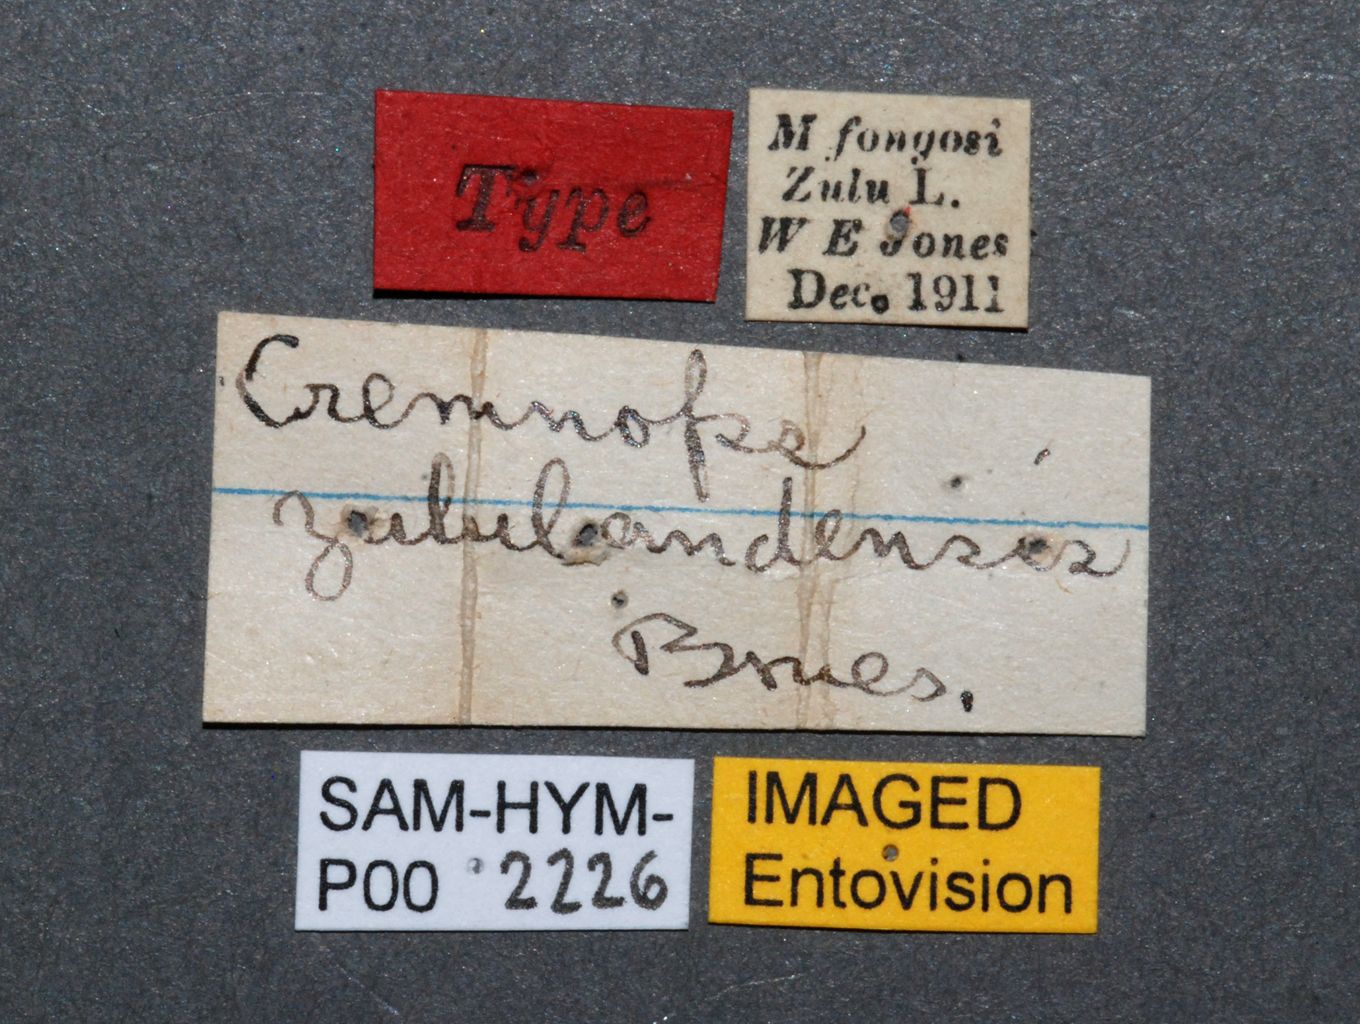 Type
M fongosi
Zulu L.
W E Jones
Dec. 1911
Cremnops
zululandensis
Brues.
SAM-HYM-
P00 2226
IMAGED
Entovision